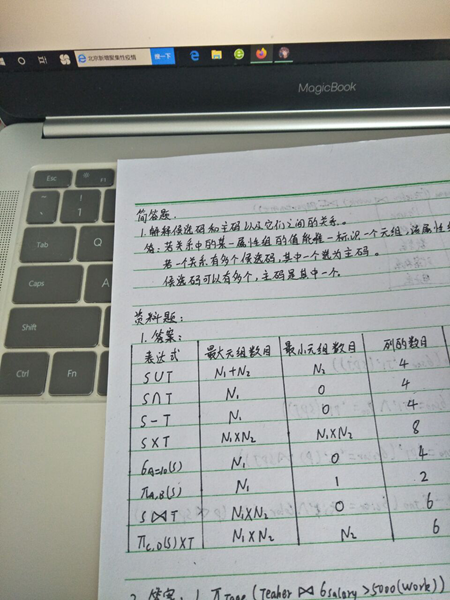 北京新增聚集性疫情 搜一下
MagicBook
Esc
F1
! 1
Tab
Q
Caps
A
Shift
Ctrl
Fn
简答题.
1.解释候选码和主码以及它们之间的关系。
答:若关系中的某一属性组的值能唯一标识一个元组,该属性
若一个关系有多个候选码,其中一个选为主码。
候选码可以有多个,主码是其中一个。
资料题:
1.答案:
表达式 最大元组数目 最小元组数目 列的数目
S∪T N₁+N₂ N₂ 4
S∩T N₁ 0 4
S-T N₁ 0 4
S×T N₁×N₂ N₁×N₂ 8
6A=10(S) N₁ 0 4
πA,B(S) N₁ 1 2
S⋈T N₁×N₂ 0 6
πC,D(S)×T N₁×N₂ N₂ 6
2.答案: 1. πTage(Teaher⋈6Salary>5000(Work))